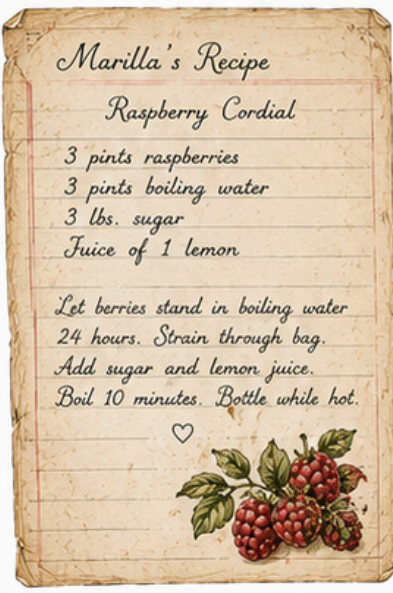 Marilla's Recipe
Raspberry Cordial
3 pints raspberries
3 pints boiling water
3 lbs. sugar
Juice of 1 lemon
Let berries stand in boiling water
24 hours. Strain through bag.
Add sugar and lemon juice.
Boil 10 minutes. Bottle while hot.